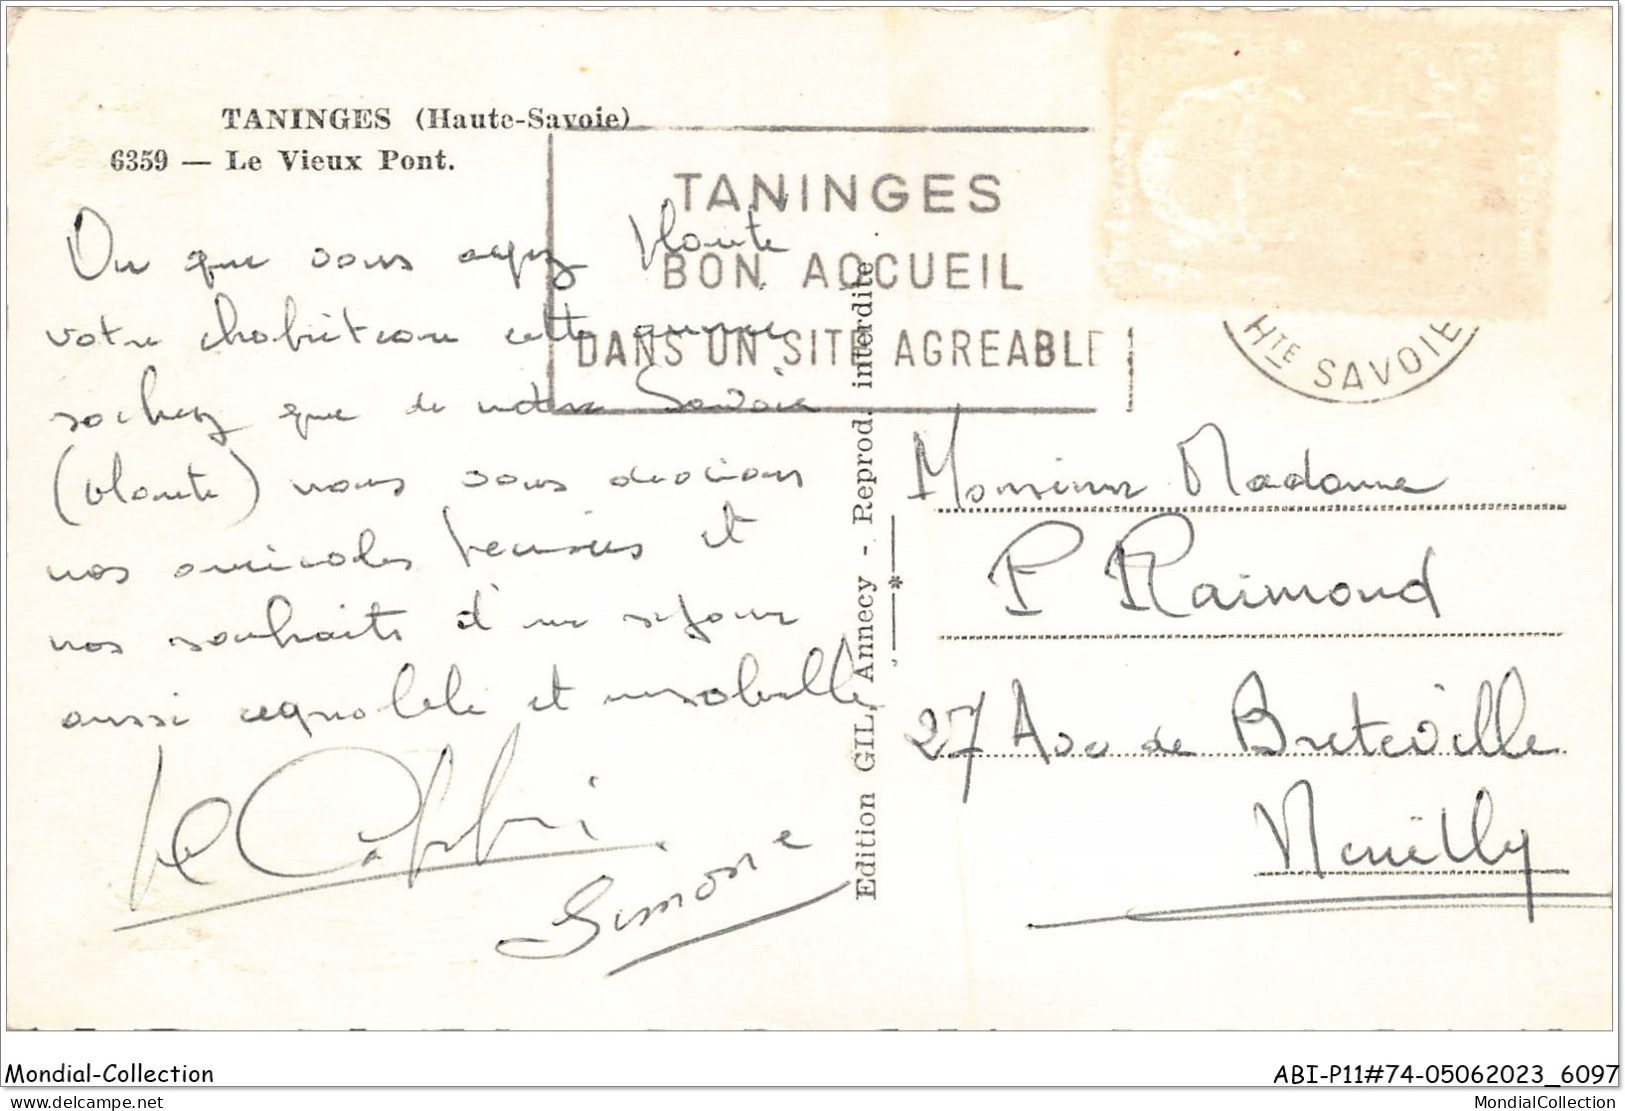 TANINGES (Haute-Savoie)
6359 — Le Vieux Pont.
TANINGES
BON ACCUEIL
DANS UN SITE AGREABLE
HTE SAVOIE
Ou que vous ayez planté
votre chapiteau cette année
sachez que de notre Savoie
(plante) nous vous devoions
nos amicales pensées et
nos souhaits d'un sejour
aussi agreable et
Simone
Edition GIL, Annecy - Reprod. interdite
Monsieur Madame
P Raimond
27 Ave de Breteville
Neuilly
Mondial-Collection
ABI-P11#74-05062023_6097
delcampe.net
MondialCollection